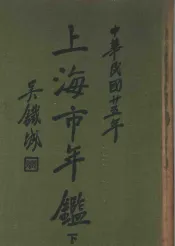 中華民國廿五年
上海市年鑑
下
吳鐵城